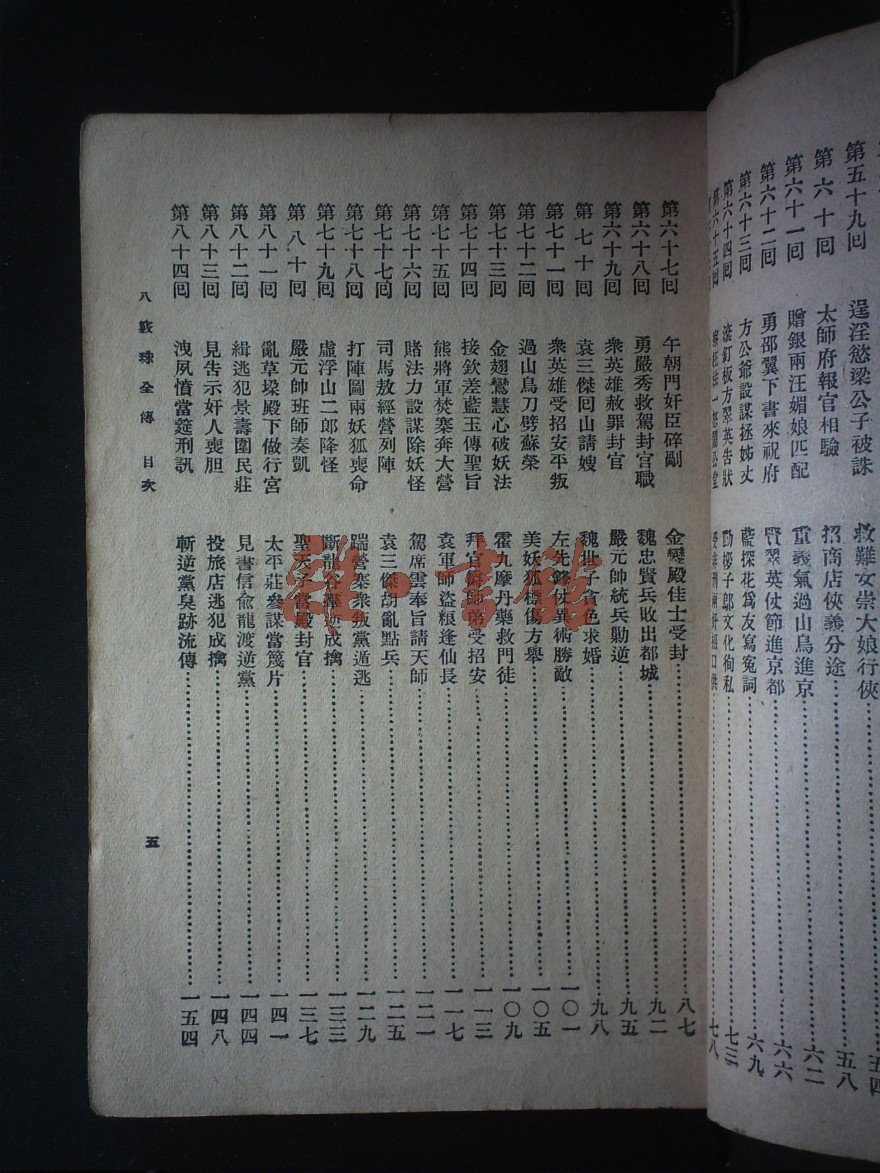 第五十九回 逞淫慾梁公子被誅 救難女崇大娘行俠 五四
第六十回 太師府報官相驗 招商店俠義分途 五八
第六十一回 贈銀兩汪媚娘匹配 重義氣過山鳥進京 六二
第六十二回 勇邵翼下書來祝府 賢翠英仗節進京都 六六
第六十三回 方公爺設謀拯姊丈 藍探花爲友寫冤詞 六九
第六十四回 滾釘板方翠英告狀 郎文化徇私 七三
第六十五回 七八
第六十七回 午朝門奸臣碎剮 金鑾殿佳士受封 八七
第六十八回 勇嚴秀救駕封官職 魏忠賢兵敗出都城 九二
第六十九回 衆英雄赦罪封官 嚴元帥統兵勦逆 九五
第七十回 袁三傑回山請嫂 魏世子貪色求婚 九八
第七十一回 衆英雄受招安平叛 左先鋒仗異術勝敵 一〇一
第七十二回 過山鳥刀劈蘇榮 美妖狐 傷方舉 一〇五
第七十三回 金翅鸞慧心破妖法 霍九摩丹藥救門徒 一〇九
第七十四回 接欽差藍玉傳聖旨 拜官爵師弟受招安 一一三
第七十五回 熊將軍焚寨奔大營 袁軍師盜糧逢仙長 一一七
第七十六回 賭法力設謀除妖怪 駕席雲奉旨請天師 一二一
第七十七回 司馬敖經營列陣 袁三傑胡亂點兵 一二五
第七十八回 打陣圖兩妖狐喪命 踹營寨衆叛黨遁逃 一二九
第七十九回 虛浮山二郎降怪 斷龍谷羣逆成擒 一三三
第八十回 嚴元帥班師奏凱 聖天子當殿封官 一三七
第八十一回 亂草垜殿下做行宮 太平莊參謀當篾片 一四一
第八十二回 緝逃犯景壽圍民莊 見書信俞龍渡逆黨 一四四
第八十三回 見告示奸人喪胆 投旅店逃犯成擒 一四八
第八十四回 洩夙憤當筵刑訊 斬逆黨臭跡流傳 一五四
八竅珠全傳 目次 五